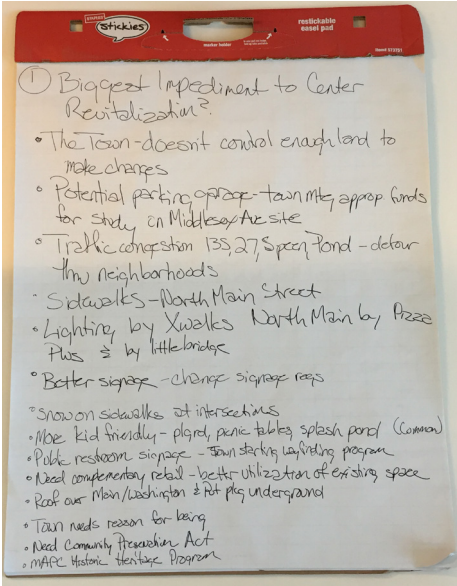 STAPLES
stickies
marker holder
restickable
easel pad
① Biggest Impediment to Center
Revitalization?
• The Town - doesn't control enough land to
make changes
• Potential parking garage - town mtg approp funds
for study on Middlesex Ave site
• Traffic congestion 135, 27, Speen Pond - detour
thru neighborhoods
• Sidewalks - North Main Street
• Lighting by Xwalks North Main by Pizza
Plus & by little bridge
• Better signage - change signage regs
• Snow on sidewalks at intersections
• More kid friendly - plgrd, picnic tables, splash pond (Common)
• Public restroom signage - Town starting wayfinding program
• Need complementary retail - better utilization of existing space
• Roof over Main/Washington & Put pkg underground
• Town needs reason for being
• Need Community Preservation Act
• MAPC Historic Heritage Program